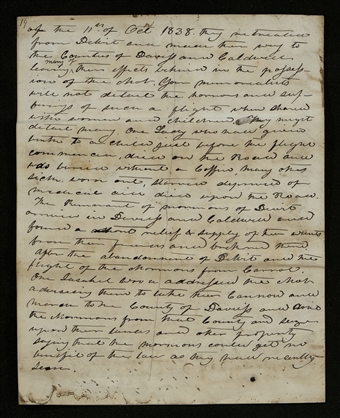 14
off the 11th of Octr 1838. they retreated
from DeWit and made their way to
the Counties of Daviess and Caldwell
leaving many of their effects behind in the posses-
sion of the Mob. Your memorialists
will not detail the horrors and suf-
ferings of such a flight when shared
with women and children. They might
detail many. One Lady who had given
birth to a child just before the flight
commenced, died on the Road and
was buried without a Coffin. Many others
sick, worn out, starved deprived of
medical aid, died upon the Road.
The Remnant of mormons of Dewit
arrive in Daviess and Caldwell and
found a short relief & supply of their wants
from their friends and brethren there
After the abandonment of DeWit and the
flight of the Mormons from Carrol.
One Sashiel Wood addressed the Mob
advising them to take their Cannon and
march to the County of Daviess and
the Mormons from that County and seize
upon their lands and other property
saying that the mormons could get no
benefit of the law as they had recently
seen.